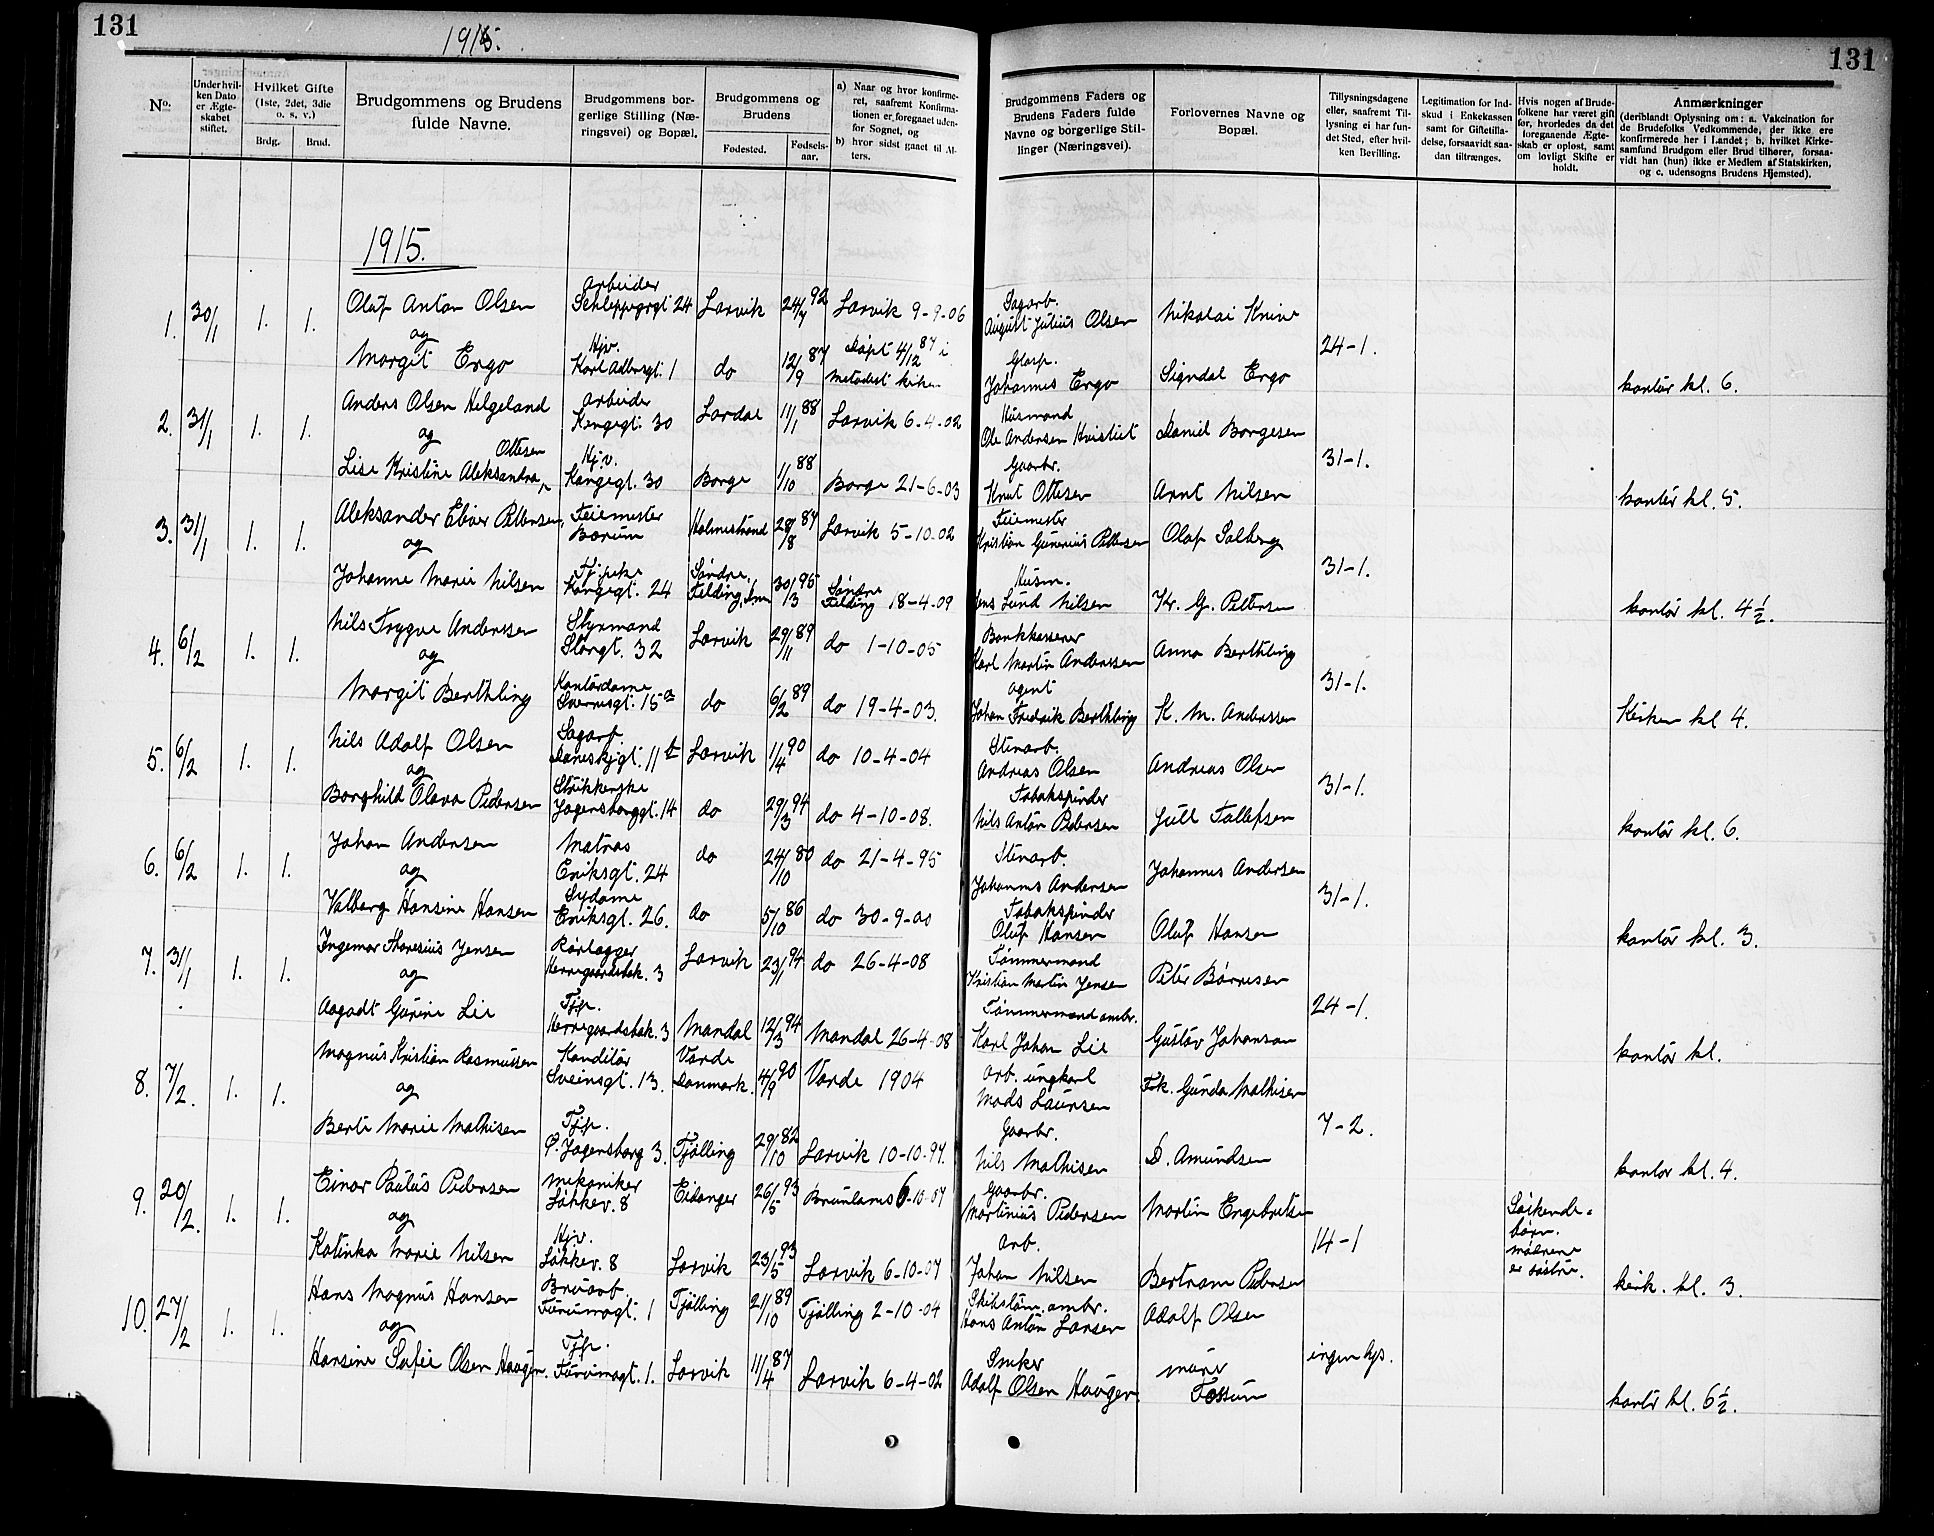 131
1915.
131
No.
Under hvilken Dato er Ægteskabet stiftet.
Hvilket Gifte (1ste, 2det, 3die o. s. v.)
Brdg.
Brud.
Brudgommens og Brudens fulde Navne.
Brudgommens borgerlige Stilling (Næringsvei) og Bopæl.
Brudgommens og Brudens
Fødested.
Fødselsaar.
a) Naar og hvor konfirmeret, saafremt Konfirmationen er foregaaet udenfor Sognet, og
b) hvor sidst gaaet til Alters.
Brudgommens Faders og Brudens Faders fulde Navne og borgerlige Stillinger (Næringsvei).
Forlovernes Navne og Bopæl.
Tillysningsdagene eller, saafremt Tillysning ei har fundet Sted, efter hvilken Bevilling.
Legitimation for Indskud i Enkekassen samt for Giftetilladelse, forsaavidt saadan tiltrænges.
Hvis nogen af Brudefolkene har været gift før, hvorledes da det foregaaende Ægteskab er opløst, samt om lovligt Skifte er holdt.
Anmærkninger
(deriblandt Oplysning om: a. Vakcination for de Brudefolks Vedkommende, der ikke ere konfirmerede her i Landet; b. hvilket Kirkesamfund Brudgom eller Brud tilhører, forsaavidt han (hun) ikke er Medlem af Statskirken, og c. udensogns Brudens Hjemsted).
1915.
1. 30/1 1. 1. Oluf Anton Olsen arbeider Schleppegrgt 24 Larvik 24/7 92 Larvik 9-9-06 Sagarb. August Julius Olsen Nikolai Knive
og 24-1.
Margit Ergo Hjv. Karl Adlersgt. 1 do 12/9 87 Døpt 4/12 87 i Metodist kirken Johannes Ergo Sigvdal Ergo kontór kl. 6.
2. 31/1 1. 1. Anders Olsen Helgeland arbeider Kongegt. 30 Lardal 11/1 88 Larvik 6-4-02 Husmand Ole Andersen Daniel Borgesen
og 31-1.
Lise Kristine Aleksandra Ottesen Hjv. Kongegt. 30 Borge 1/10 88 Borge 21-6-03 Gaarbr. Knut Ottesen Arnt Nilsen kontór kl. 5.
3. 31/1 1. 1. Aleksander Eliver Pettersen Feiemester Barum Holmestrand 28/8 87 Larvik 5-10-02 Feiemester Kristian Gunerius Pettersen Olaf Solberg
og 31-1.
Johanne Marie Nilsen Tj.pike Kongegt. 24 Søndre Felding, Dnm 30/3 95 Søndre Felding 18-4-09 Husm. Jens Lund Nilsen Kr. G. Pettersen kontór kl. 4½.
4. 6/2 1. 1. Nils Trygve Anderssen Styrmand Storgt. 32 Larvik 29/11 89 do 1-10-05 Bankkasserer Karl Martin Anderssen Anna Berthling
og 31-1.
Margit Berthling Kontórdame Sverresgt. 15a do 6/2 89 do 19-4-03. agent Johan Fredrik Berthling K. M. Anderssen Kirken kl 4.
5. 6/2 1. 1. Nils Adolf Olsen Sagarb. 11b Larvik 1/4 90 do 10-4-04 Stenarb. Andreas Olsen Andreas Olsen
og 31-1.
Borghild Olava Pedersen Strikkerske Jagersborggt. 14 do 29/3 94 do 4-10-08. Tobakspinder Nils Anton Pedersen Juul Tallefsen kontór kl. 6.
6. 6/2 1. 1. Johan Andersen Matros Eriksgt. 24 do 24/10 80 do 21-4-95 Stenarb. Johannes Andersen Johannes Andersen
og 31-1.
Valborg Hansine Hansen Sydame Eriksgt. 26. do 5/10 86 do 30-9-00 Tobakspinder Oluf Hansen Oluf Hansen kontór kl. 3.
7. 31/1 1. 1. Ingemar Thoresius Jensen Rørlægger Herregaardsbak. 3 Larvik 23/1 94 do 26-4-08 Tømmermand Kristian Martin Jensen Peter Børresen
og 24-1.
Aagodt Gurine Lie Tjp. Herregaardsbak. 3 Mandal 12/3 94 Mandal 26-4-08 Tømmermand ombr. Karl Johan Lie Gustav Johanson kontór kl.
8. 7/2. 1. 1. Magnus Kristian Rasmussen Konditor Sveinsgt. 13. Varde Danmark. 4/9 90 Varde 1904 arb. ungkarl Mads Laursen Frk. Gunda Mathisen
og 7-2.
Berte Marie Mathisen Tjp. Ø. Jagersborg 3. Tjølling 29/10 82 Larvik 10-10-97. Gaarbr. Nils Mathisen D. Amundsen kontor kl. 4.
9. 20/2. 1. 1. Einar Paulus Pedersen Mekaniker Løkkev. 8 Eidanger 26/5 93 Brunlanes 6-10-07 Gaarbr. Martinius Pedersen Martin Engebretsen Søskendebørn. mødrene er søstre.
og 14-1
Katinka Marie Nilsen Hjv. Løkkev. 8 Larvik 23/5 93 Larvik 6-10-07 arb. Johan Nilsen Bertram Pedersen kirk. kl. 3.
10. 27/2 1. 1. Hans Magnus Hansen Bruarb. Furumogt. 1 Tjølling 21/10 89 Tjølling 2-10-04 Skibstøm. ombr. Hans Anton Larsen Adolf Olsen
og ingen lys.
Hansine Sofie Olsen Haugen. Tjp. Furumogt. 1. Larvik 11/4 87 Larvik 6-4-02 Sneker Adolf Olsen Haugen. murer Fossum kontór kl. 6½.